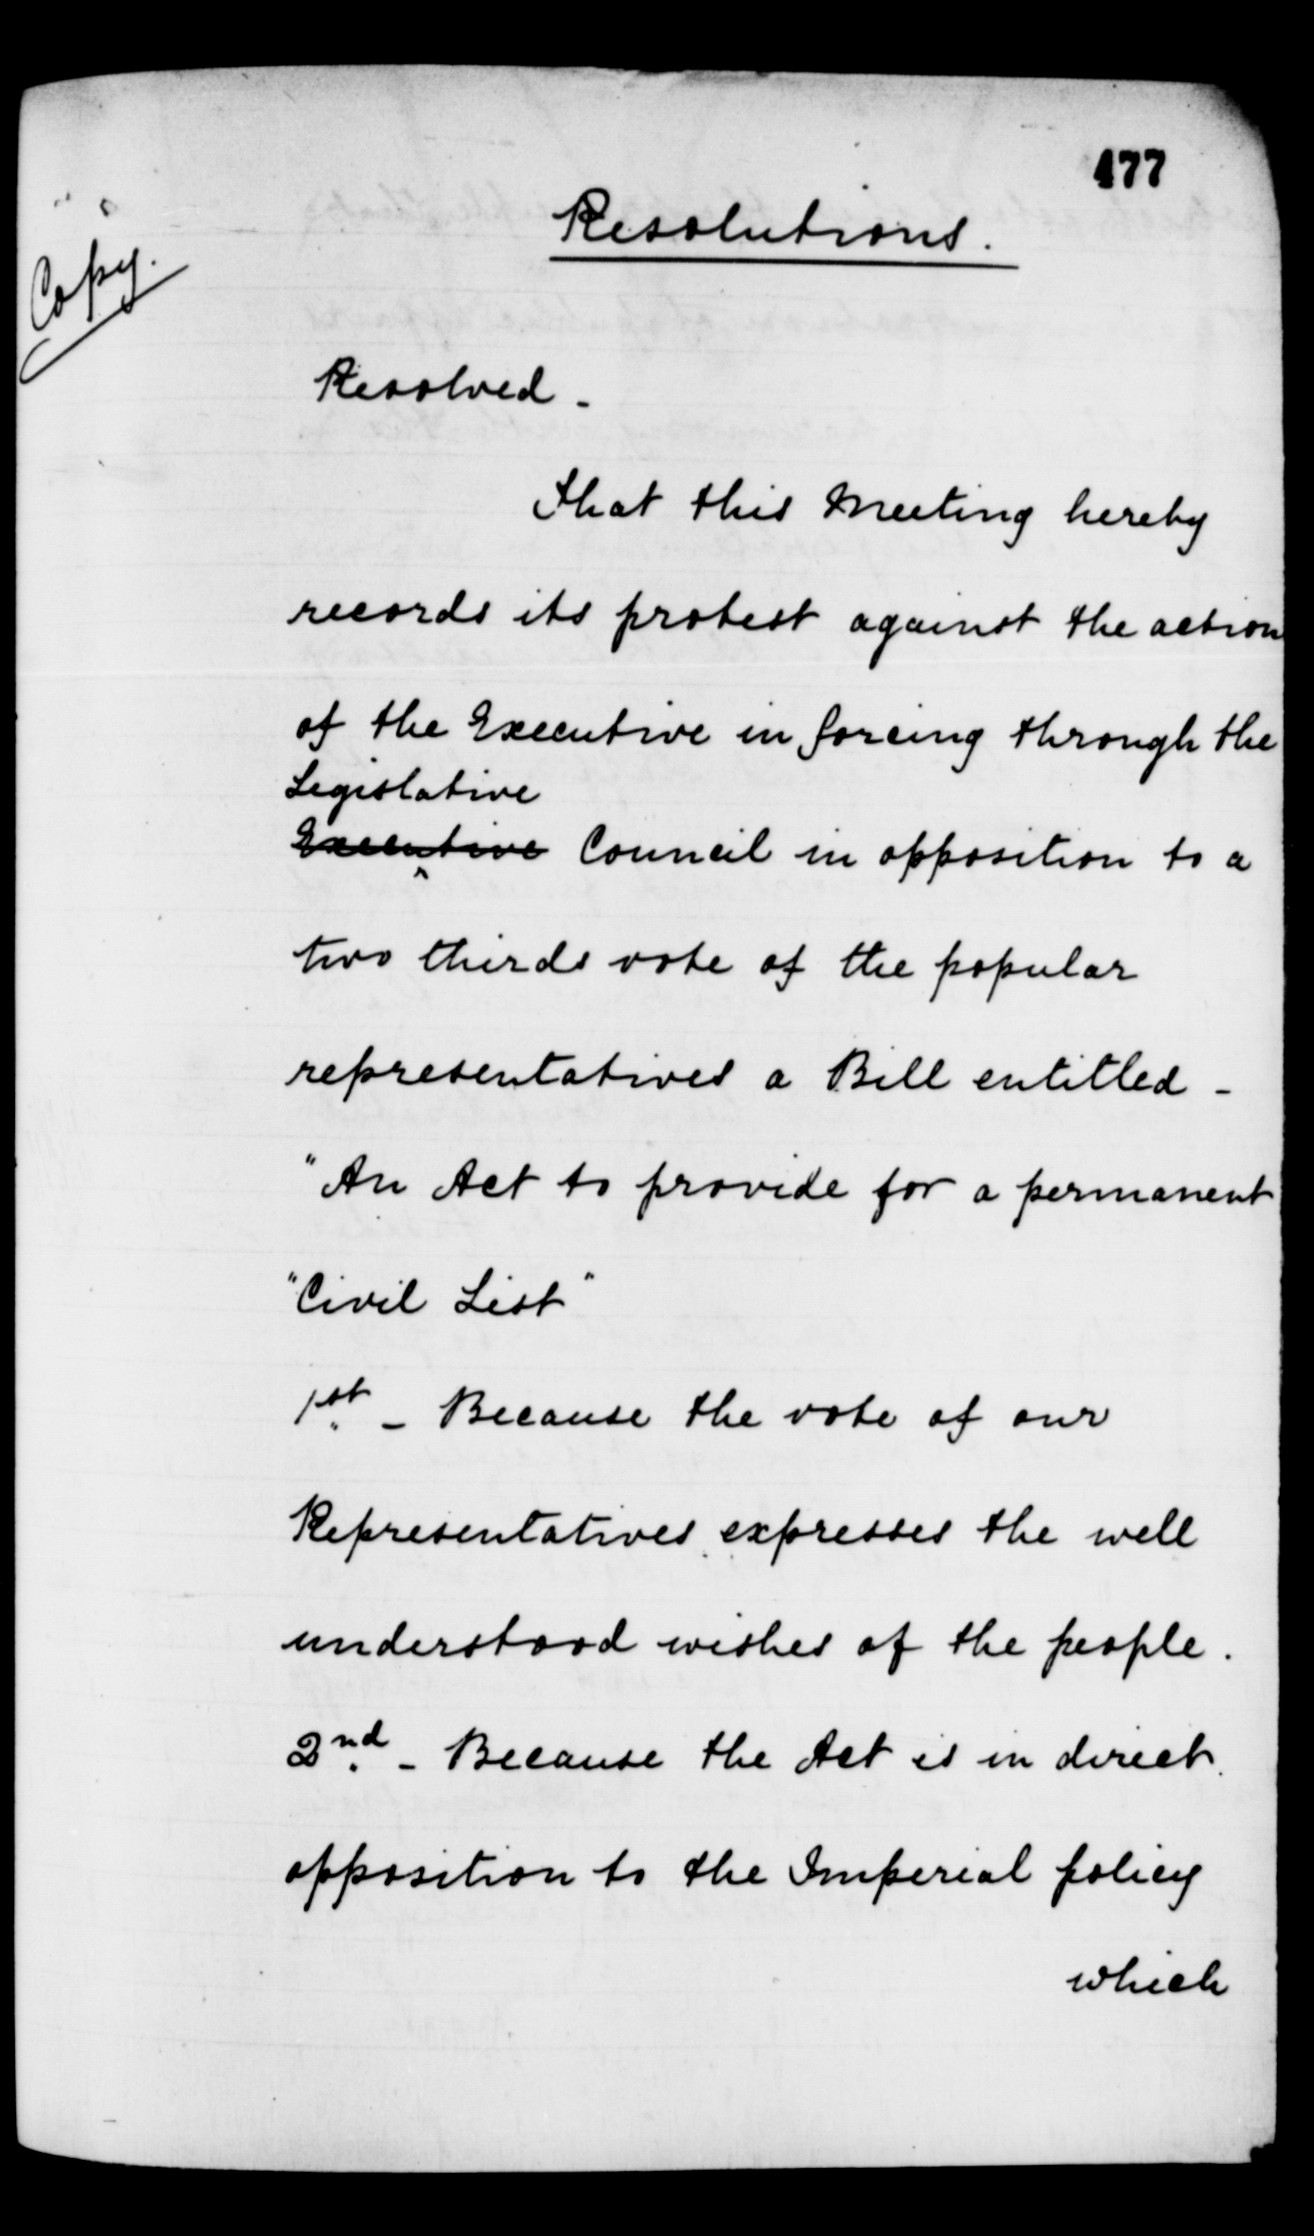 477
Copy.
Resolutions.
Resolved -
That this Meeting hereby
records its protest against the action
of the Executive in forcing through the
Legislative
Executive Council in opposition to a
two thirds vote of the popular
representatives a Bill entitled -
"An Act to provide for a permanent
"Civil List"
1st. - Because the vote of our
Representatives expresses the well
understood wishes of the people.
2nd. - Because the Act is in direct
opposition to the Imperial policy
which